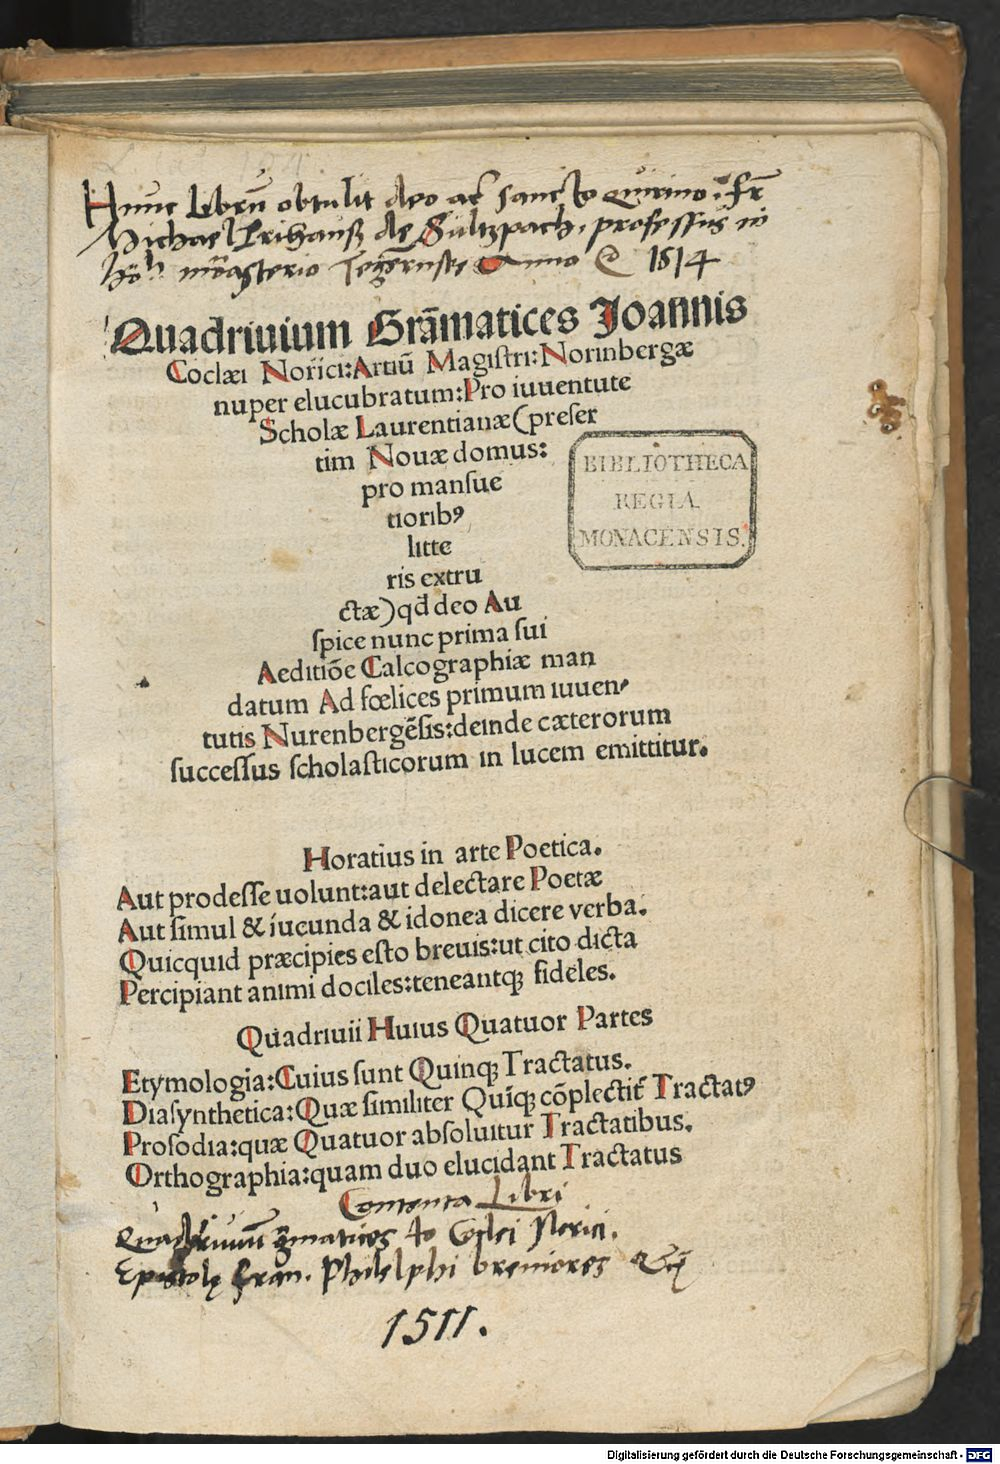 Hunc Librū obtulit deo ac sancto Quirino: fr̄
Michael de Sultzpach, professus in
mōasterio Anno 1514
Quadriuium Grāmatices Joannis
Coclæi Norici: Artiū Magiſtri: Norinbergæ
nuper elucubratum: Pro iuuentute
Scholæ Laurentianæ (preſer
tim Nouæ domus:
pro manſue
tioribꝯ
litte
ris extru
ctæ) qđ deo Au
ſpice nunc prima ſui
Aeditiōe Calcographiæ man
datum Ad fœlices primum iuuen⸗
tutis Nurenbergēſis: deinde cæterorum
ſucceſſus ſcholaſticorum in lucem emittitur.
BIBLIOTHECA
REGIA
MONACENSIS.
Horatius in arte Poetica.
Aut prodeſſe uolunt: aut delectare Poetæ
Aut ſimul & iucunda & idonea dicere verba.
Quicquid præcipies eſto breuis: ut cito dicta
Percipiant animi dociles: teneantqꝫ fideles.
Quadriuii Huius Quatuor Partes
Etymologia: Cuius ſunt Quinqꝫ Tractatus.
Diaſynthetica: Quæ ſimiliter Quīqꝫ cōplectit̄ Tractatꝯ
Proſodia: quæ Quatuor abſoluitur Tractatibus.
Orthographia: quam duo elucidant Tractatus
Contenta Libri
Quadriuiū grāmatices Io Coclei Norici.
Epistolę Fran. Philelphi breuiores
1511.
Digitalisierung gefördert durch die Deutsche Forschungsgemeinschaft - DFG